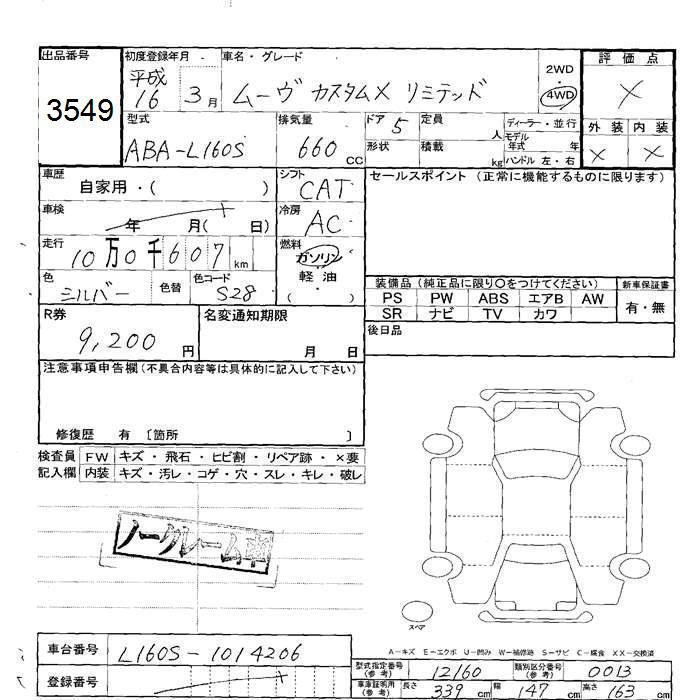 出品番号
3549
初度登録年月
平成 16 3月
車名・グレード
ムーヴ カスタムX リミテッド
2WD
・
4WD
評価点
X
外装 内装
X X
型式
ABA-L160S
排気量
660 cc
ドア 5
形状
定員 人
積載 kg
ディーラー・並行
モデル
年式 年
ハンドル 左・右
車歴
自家用・( )
シフト
CAT
セールスポイント (正常に機能するものに限ります)
車検
年 月( 日)
冷房
AC
走行
10万0千607km
燃料
ガソリン
軽油
( )
色
シルバー
色替
色コード
S28
装備品 (純正品に限り○をつけてください)
PS PW ABS エアB AW
SR ナビ TV カワ
新車保証書
有・無
R券
9,200円
名変通知期限
月 日
後日品
注意事項申告欄 (不具合内容等は具体的に記入して下さい)
修復歴 有 〔箇所 〕
検査員
記入欄
FW キズ・飛石・ヒビ割・リペア跡・×要
内装 キズ・汚レ・コゲ・穴・スレ・キレ・破レ
ノークレーム車
スペア
車台番号
L160S-1014206
登録番号
A-キズ E-エクボ U-凹み W-補修跡 S-サビ C-腐食 XX-交換済
型式指定番号
(参考)
12160
類別区分番号
(参考)
0013
車庫証明用
(参考)
長さ 339 cm 幅 147 cm 高さ 163 cm